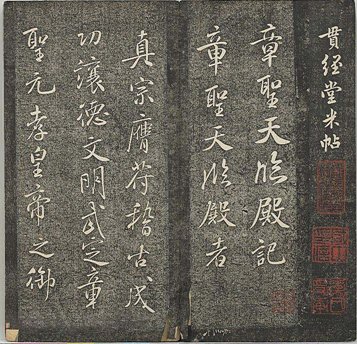 貫經堂米帖
章聖天臨殿記
章聖天臨殿者
真宗膺符稽古成
功讓德文明武定章
聖元孝皇帝之御